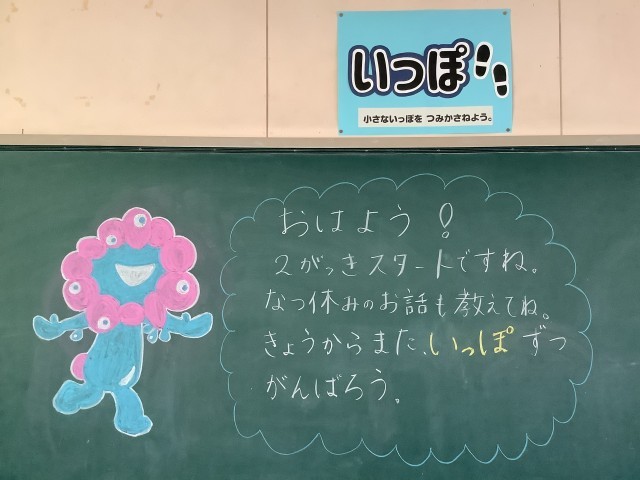 いっぽ
小さないっぽを つみかさねよう。
おはよう！
2がっきスタートですね。
なつ休みのお話も教えてね。
きょうからまた、いっぽずつ
がんばろう。